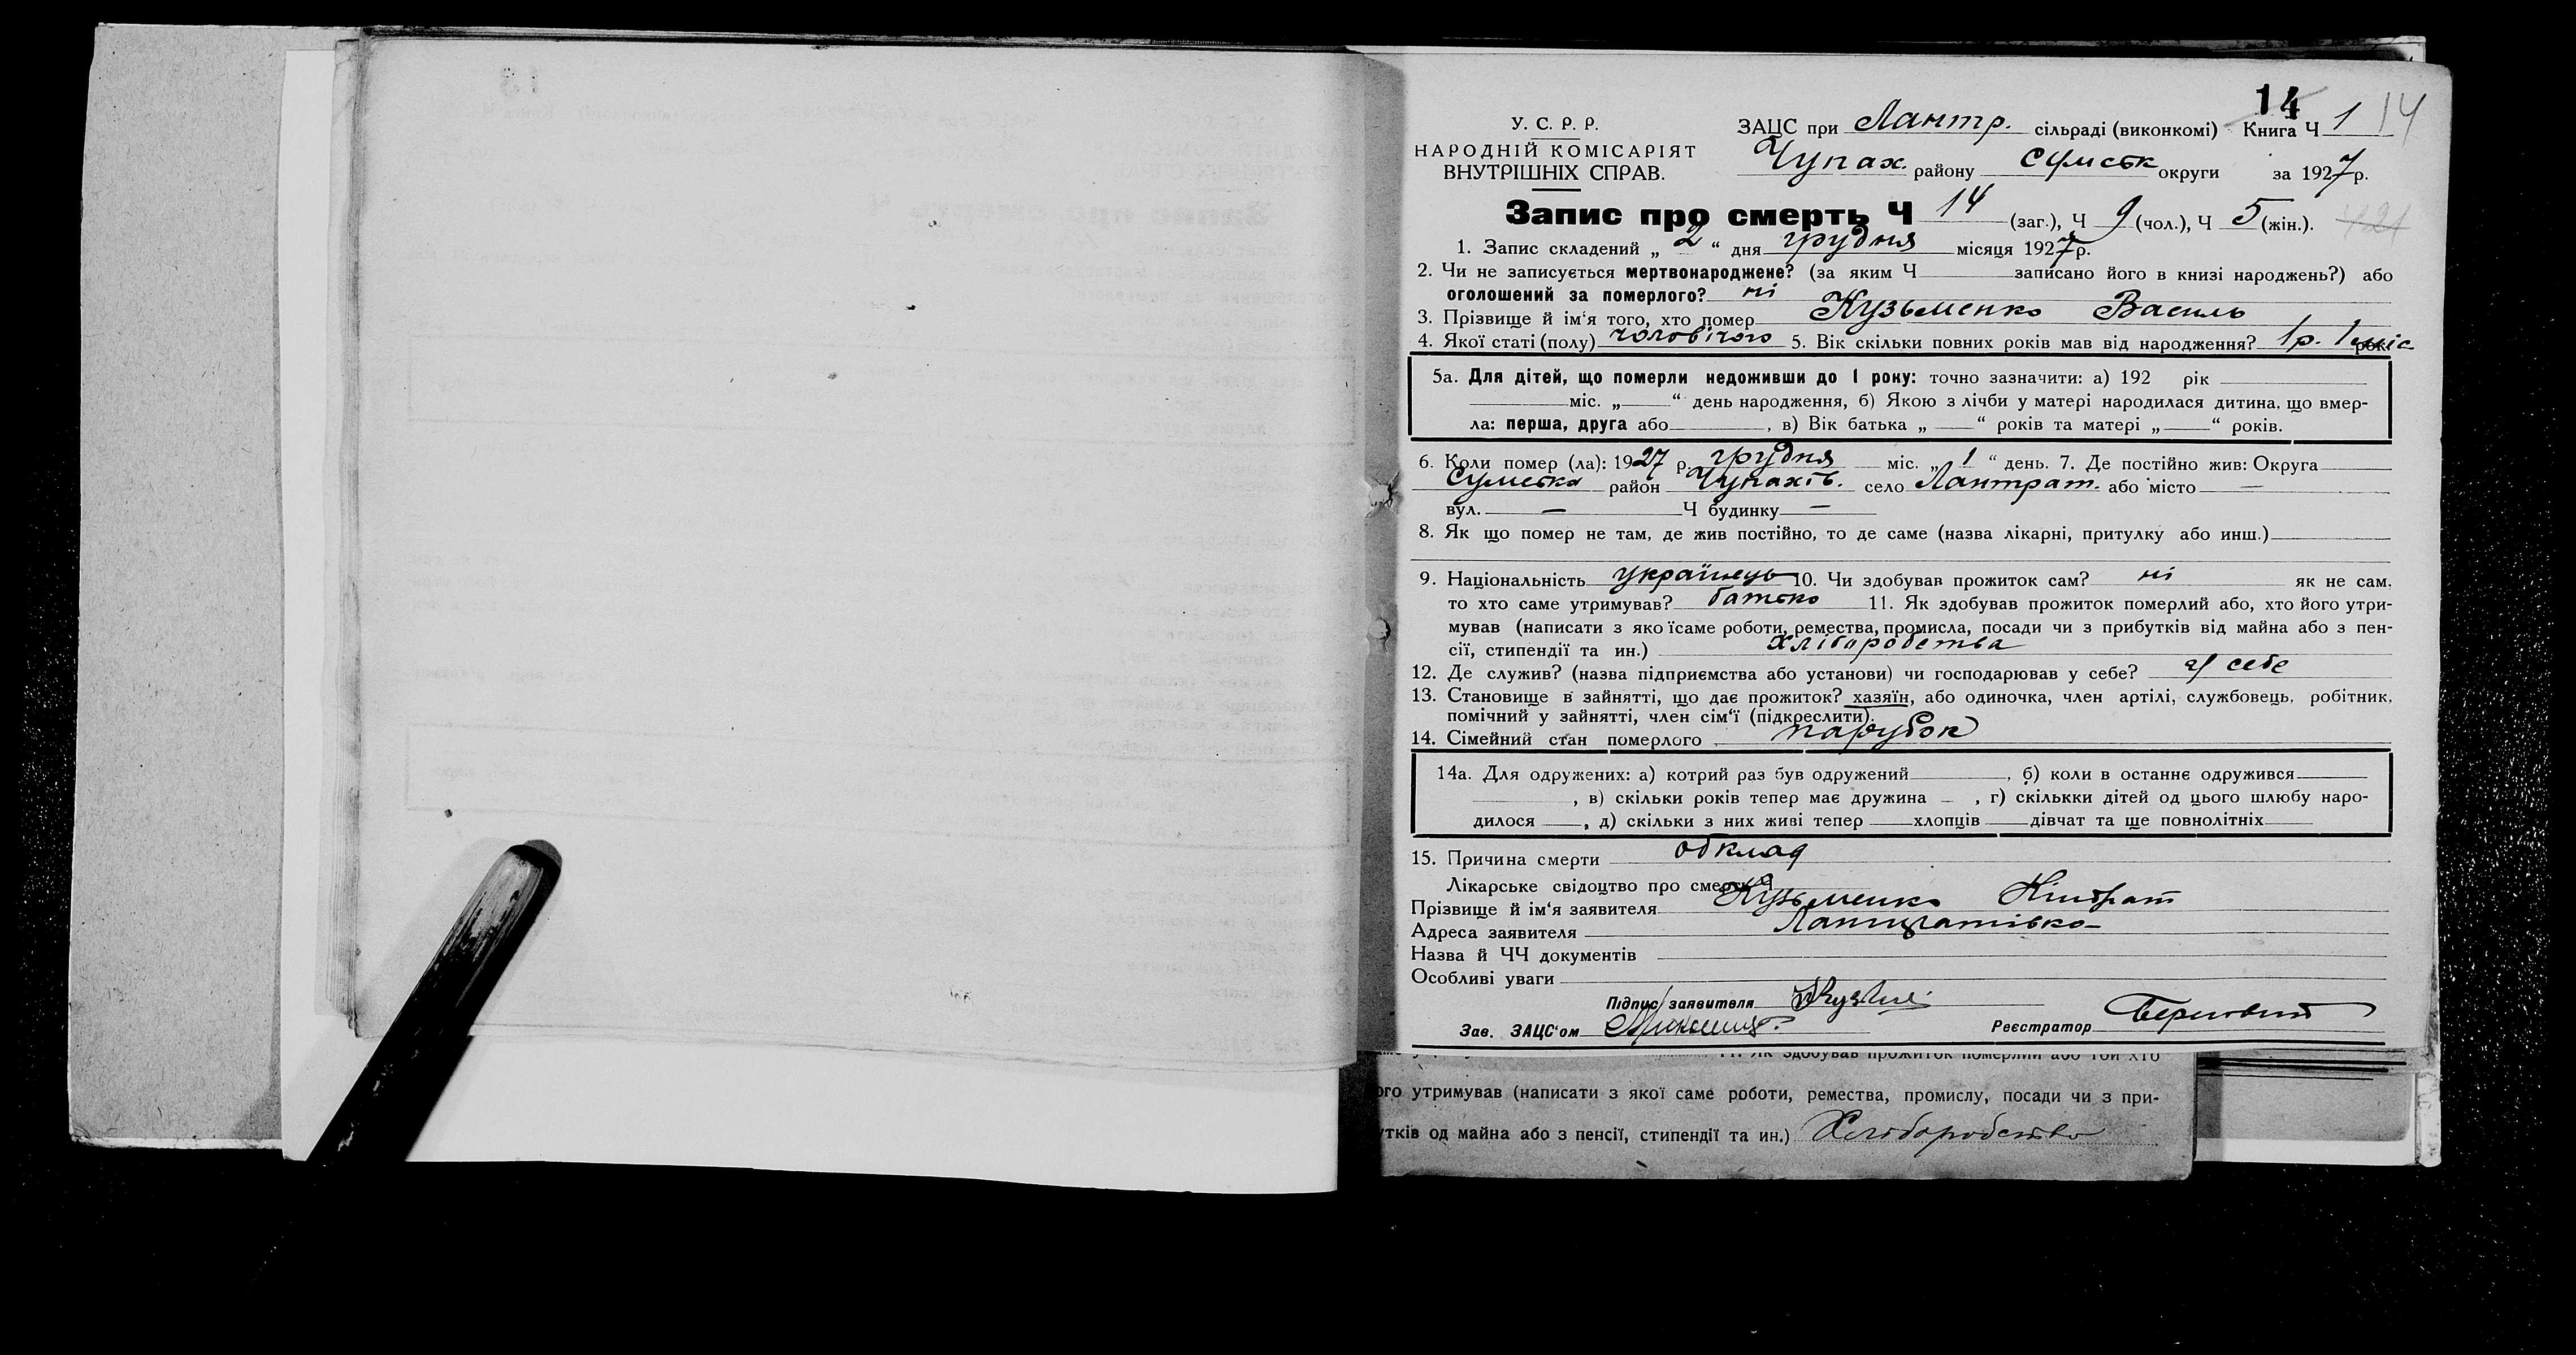 14
14
У. С. Р. Р.
НАРОДНІЙ КОМІСАРІЯТ
ВНУТРІШНІХ СПРАВ.
ЗАЦС при Лантр. сільраді (виконкомі) Книга Ч 1
Чупах. району Сумськ округи за 1927 р.
Запис про смерть Ч 14 (заг.), Ч 9 (чол.), Ч 5 (жін.).
1. Запис складений „ 2 “ дня грудня місяця 1927 р.
2. Чи не записується мертвонароджене? (за яким Ч записано його в книзі народжень?) або
оголошений за померлого? ні
3. Прізвище й ім‘я того, хто помер Кузьменко Василь
4. Якої статі (полу) чоловічого 5. Вік скільки повних років мав від народження? 1 р. 1 міс
5а. Для дітей, що померли недоживши до 1 року: точно зазначити: а) 192 рік
міс. „ “ день народження, б) Якою з лічби у матері народилася дитина, що вмер-
ла: перша, друга або , в) Вік батька „ “ років та матері „ “ років.
6. Коли помер (ла): 1927 р. грудня міс. „ 1 “ день. 7. Де постійно жив: Округа
Сумська район Чупахів. село Лантрат. або місто —
вул. — Ч будинку —
8. Як що помер не там, де жив постійно, то де саме (назва лікарні, притулку або инш.)
9. Національність українець 10. Чи здобував прожиток сам? ні як не сам,
то хто саме утримував? батько 11. Як здобував прожиток померлий або, хто його утри-
мував (написати з якоїсаме роботи, ремества, промисла, посади чи з прибутків від майна або з пен-
сії, стипендії та ин.) хліборобства
12. Де служив? (назва підприємства або установи) чи господарював у себе? у себе
13. Становище в зайнятті, що дає прожиток? хазяїн, або одиночка, член артілі, службовець, робітник,
помічний у зайнятті, член сім‘ї (підкреслити).
14. Сімейний стан померлого парубок
14а. Для одружених: а) котрий раз був одружений , б) коли в останнє одружився
, в) скільки років тепер має дружина — , г) скількки дітей од цього шлюбу наро-
дилося , д) скільки з них живі тепер хлопців дівчат та ще повнолітніх
15. Причина смерти обклад
Лікарське свідоцтво про смерть Ч
Прізвище й ім‘я заявителя Кузьменко Кіндрат
Адреса заявителя Лантратівка
Назва й ЧЧ документів
Особливі уваги
Підпис заявителя
Зав. ЗАЦС‘ом Реєстратор
11. Як здобував прожиток померлий або той хто
ого утримував (написати з якої саме роботи, ремества, промислу, посади чи з при-
утків од майна або з пенсії, стипендії та ин.) Хліборобство